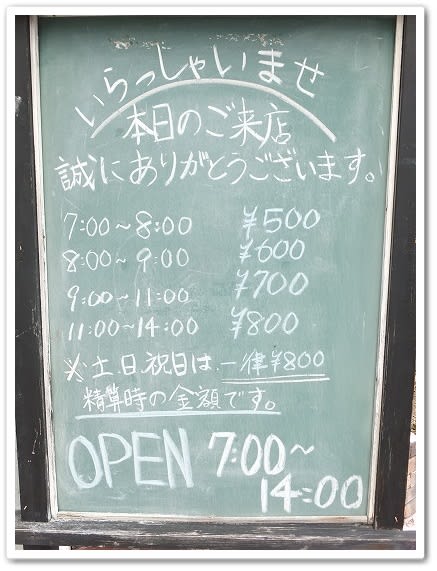 いらっしゃいませ
本日のご来店
誠にありがとうございます。
7:00～8:00 ¥500
8:00～9:00 ¥600
9:00～11:00 ¥700
11:00～14:00 ¥800
※土.日.祝日は.一律¥800
精算時の金額です。
OPEN 7:00～
14:00